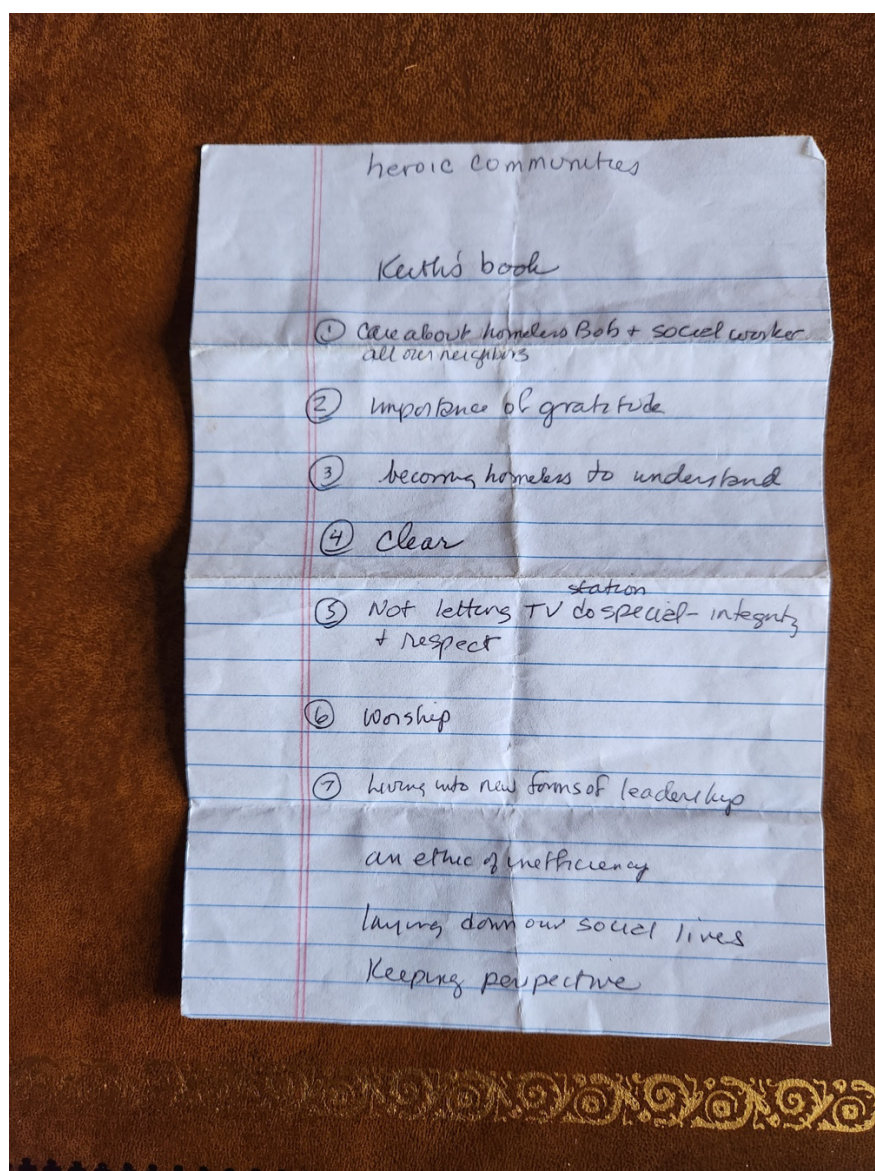 heroic communities
Keith's book
① Care about homeless Bob + social worker
all our neighbors
② importance of gratitude
③ becoming homeless to understand
④ clear
station
⑤ Not letting TV do special - integrity
+ respect
⑥ worship
⑦ living into new forms of leadership
an ethic of inefficiency
laying down our social lives
Keeping perspective